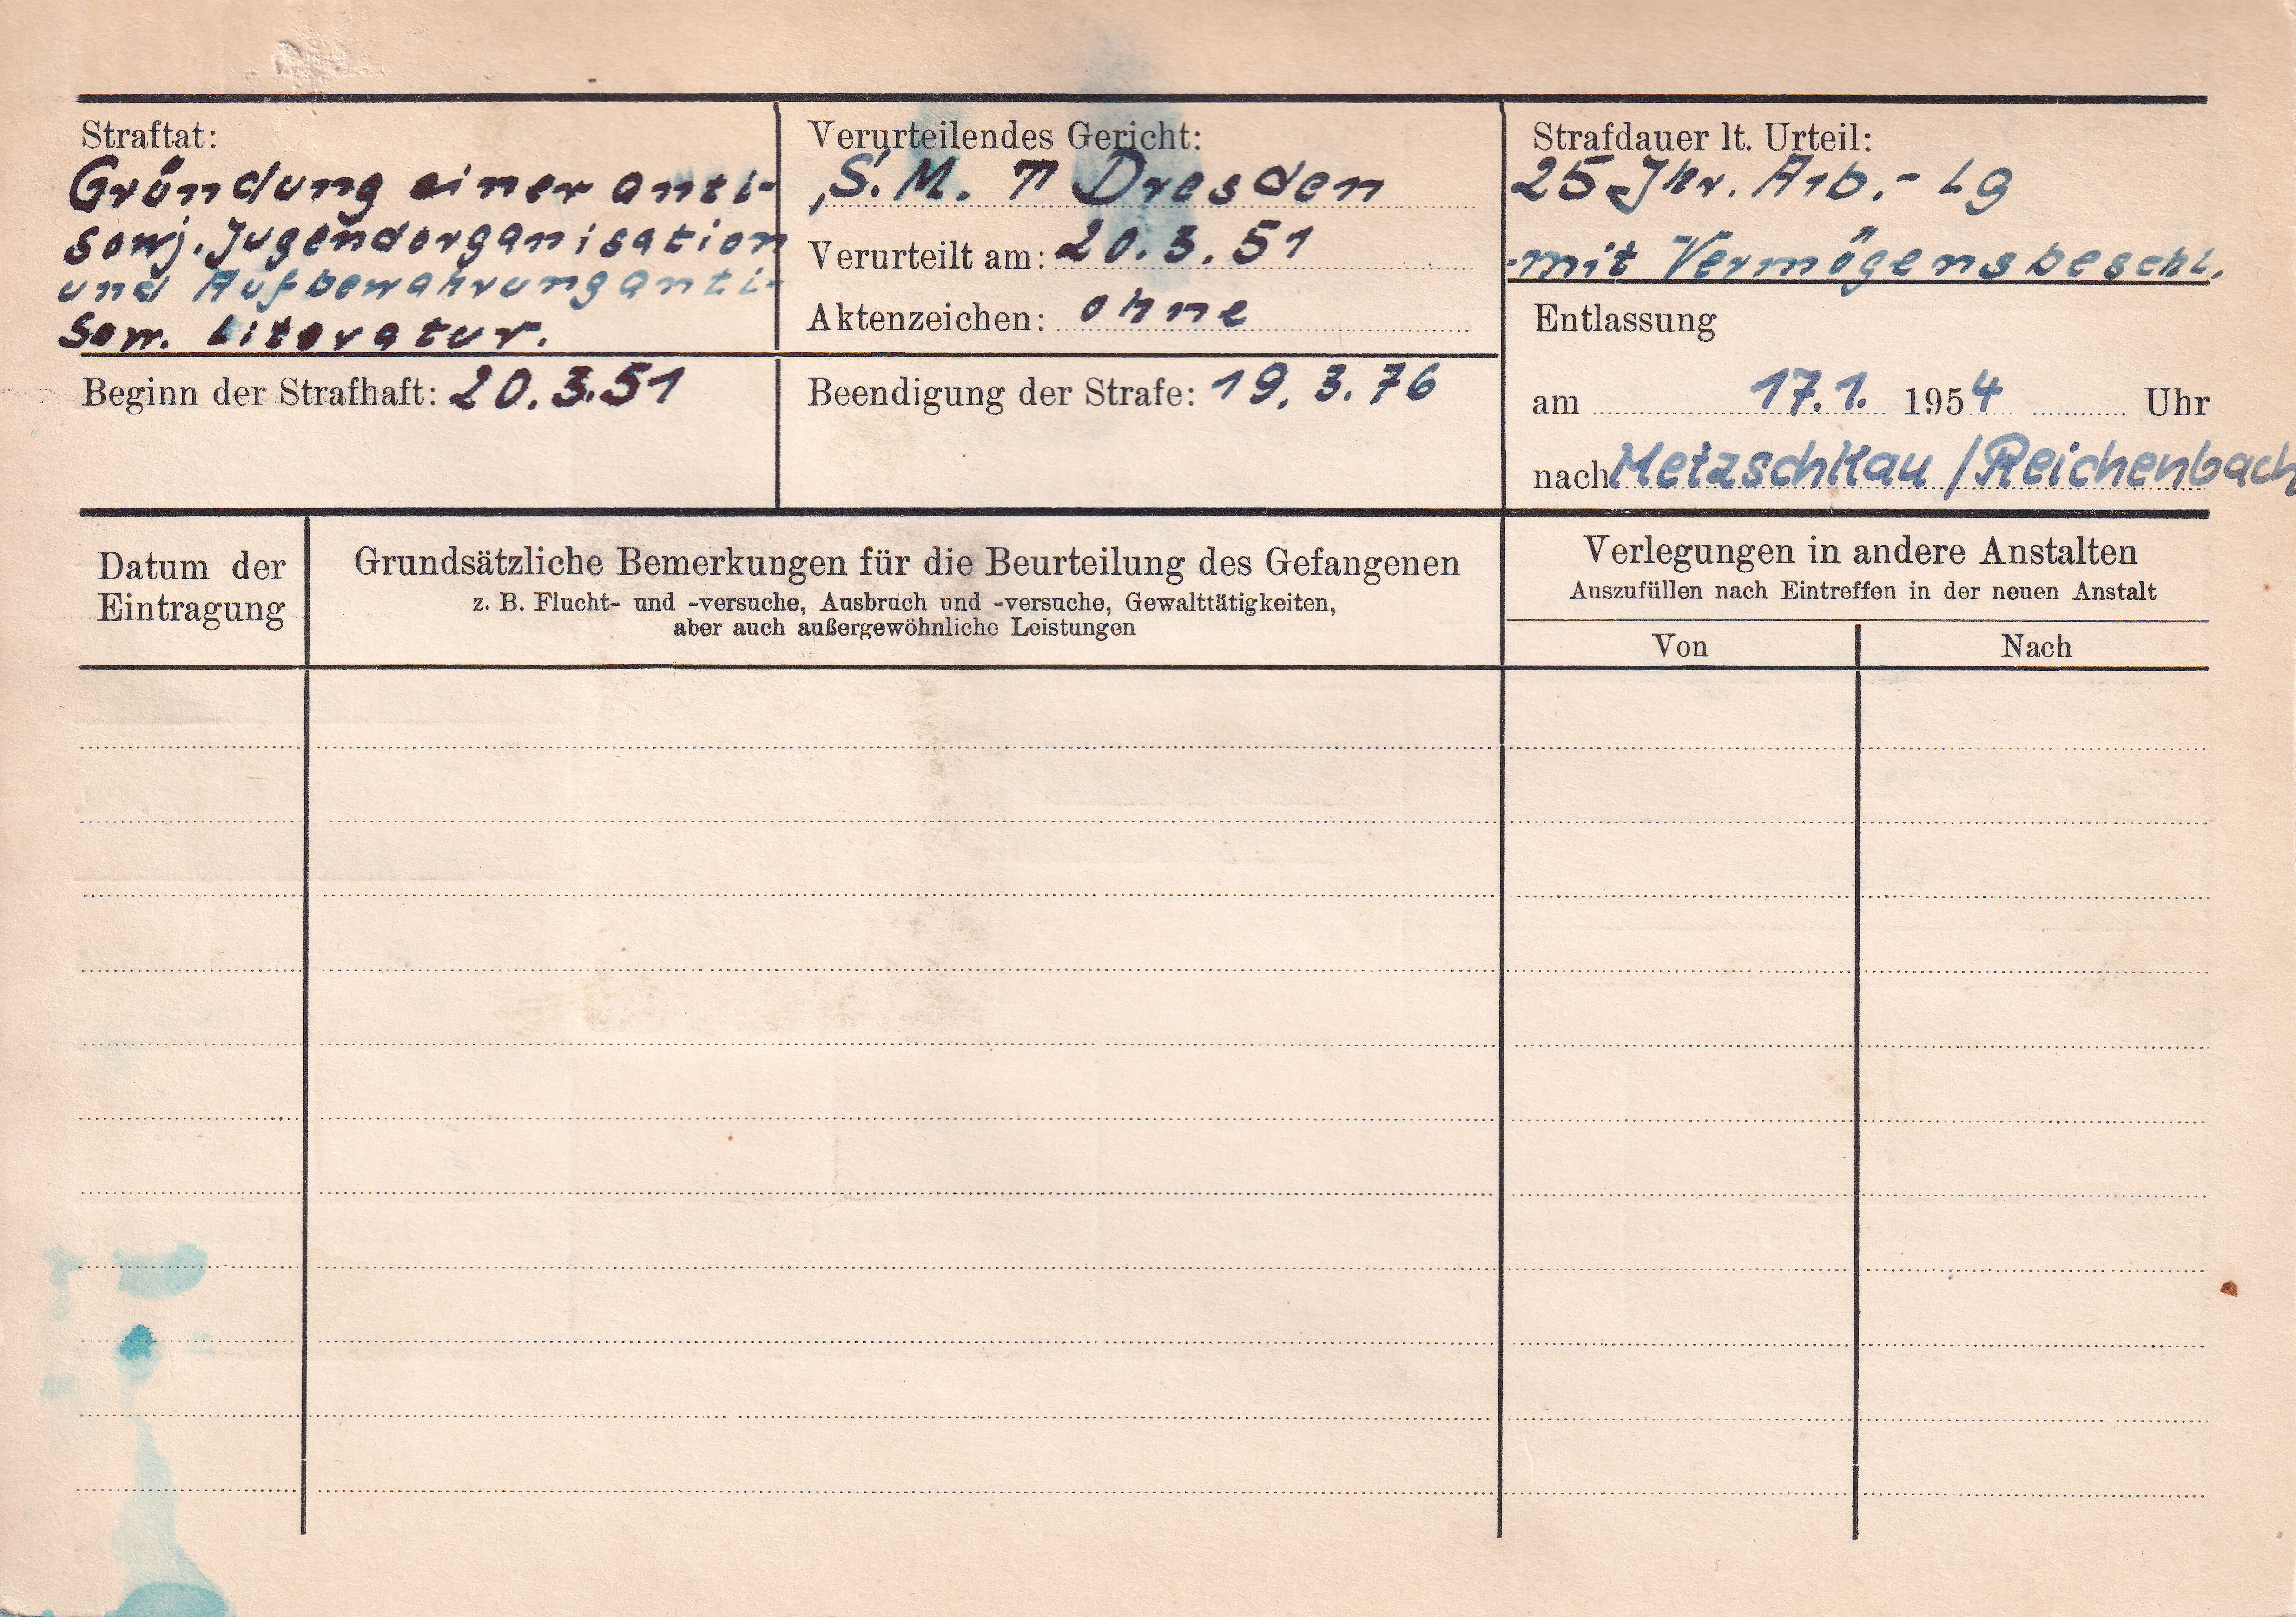 Straftat:
Gründung einer anti-
sowj. Jugendorganisation
und Aufbewahrung anti-
sow. Literatur.
Verurteilendes Gericht:
S. M. T Dresden
Verurteilt am: 20. 3. 51
Aktenzeichen: ohne
Strafdauer lt. Urteil:
25 Jhr. Arb.- Lg
-mit Vermögensbeschl.
Beginn der Strafhaft: 20. 3. 51
Beendigung der Strafe: 19. 3. 76
Entlassung
am 17. 1. 1954 Uhr
nach Metzschkau / Reichenbach
Datum der
Eintragung
Grundsätzliche Bemerkungen für die Beurteilung des Gefangenen
z. B. Flucht- und -versuche, Ausbruch und -versuche, Gewalttätigkeiten,
aber auch außergewöhnliche Leistungen
Verlegungen in andere Anstalten
Auszufüllen nach Eintreffen in der neuen Anstalt
Von Nach